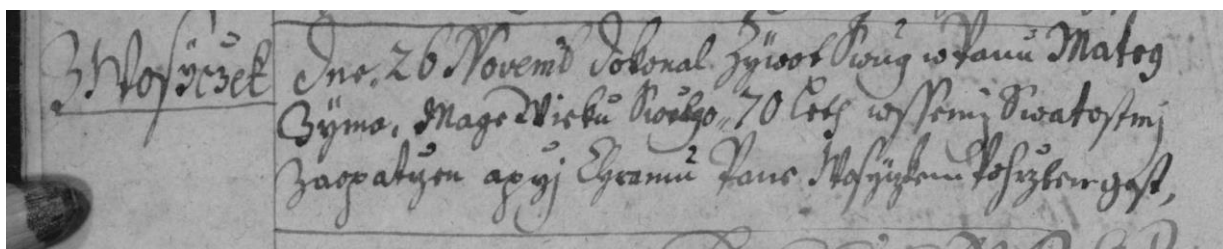 Z Wosyczek
Dne. 26 Novemb Dokonal Zywot Swug w Panu Mateg
Zyma, Mage Wieku Sweho 70 Leth wssemi Swatostmi
Zaopatrzen a przi Chramu Pane Wosyczkem Pohrzben gest,